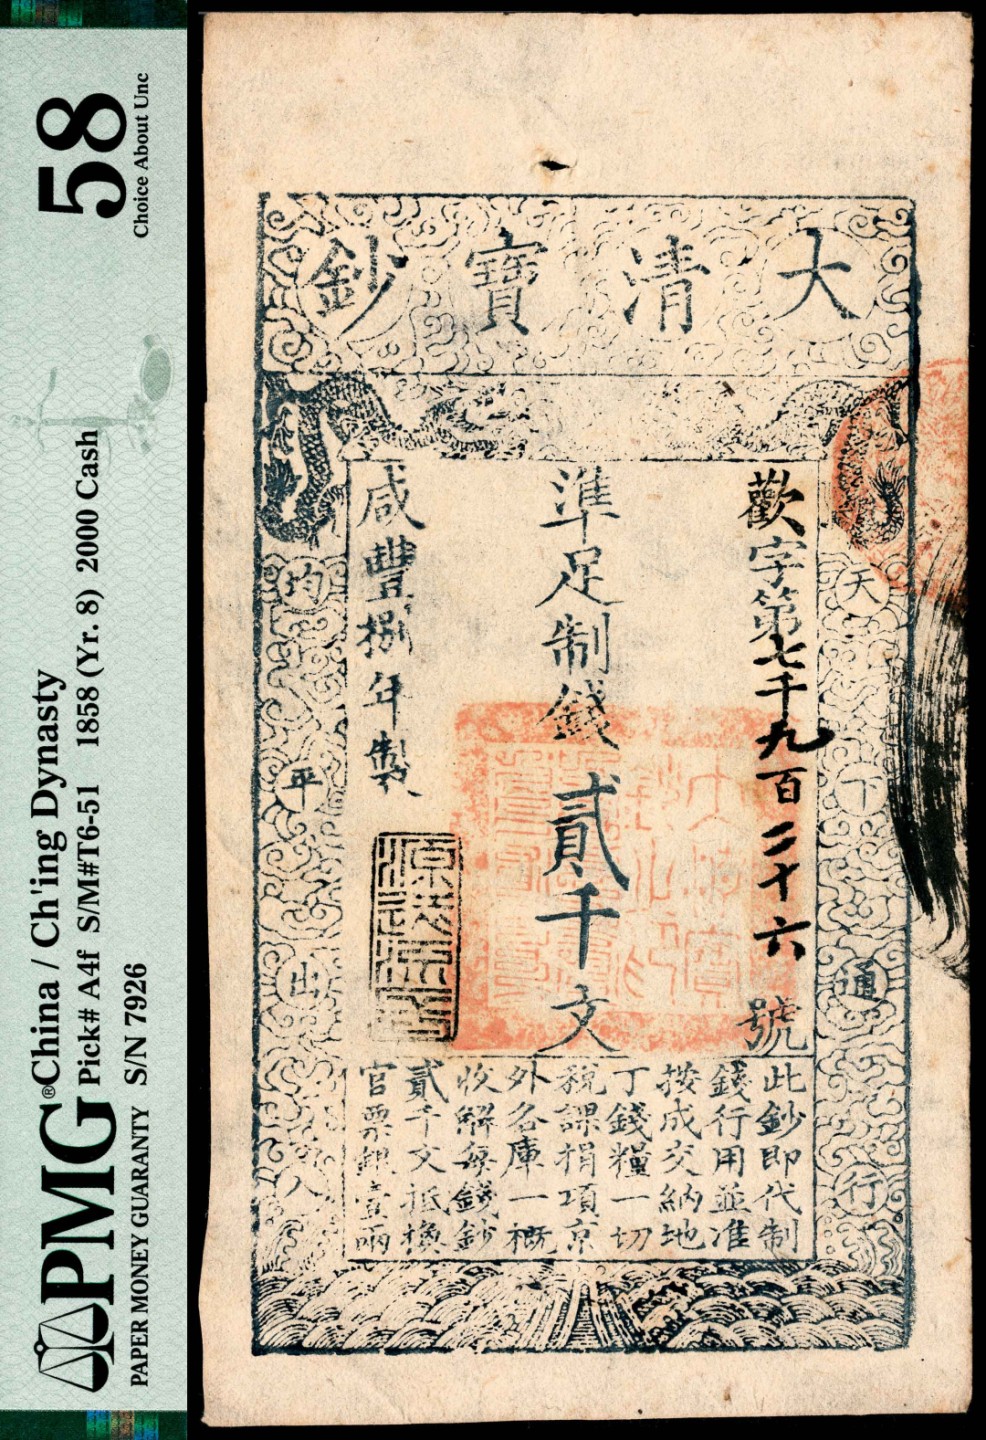 PMG®
PAPER MONEY GUARANTY
China / Ch'ing Dynasty
Pick# A4f S/M#T6-51 1858 (Yr. 8) 2000 Cash
S/N 7926
58
Choice About Unc
大清寶鈔
天下通行
均平出入
歡字第七千九百二十六號
準足制錢貳千文
咸豐捌年製
此鈔即代制
錢行用並准
按成交納地
丁錢糧一切
稅課捐項京
外各庫一概
收解每錢鈔
貳千文抵換
官票銀壹兩